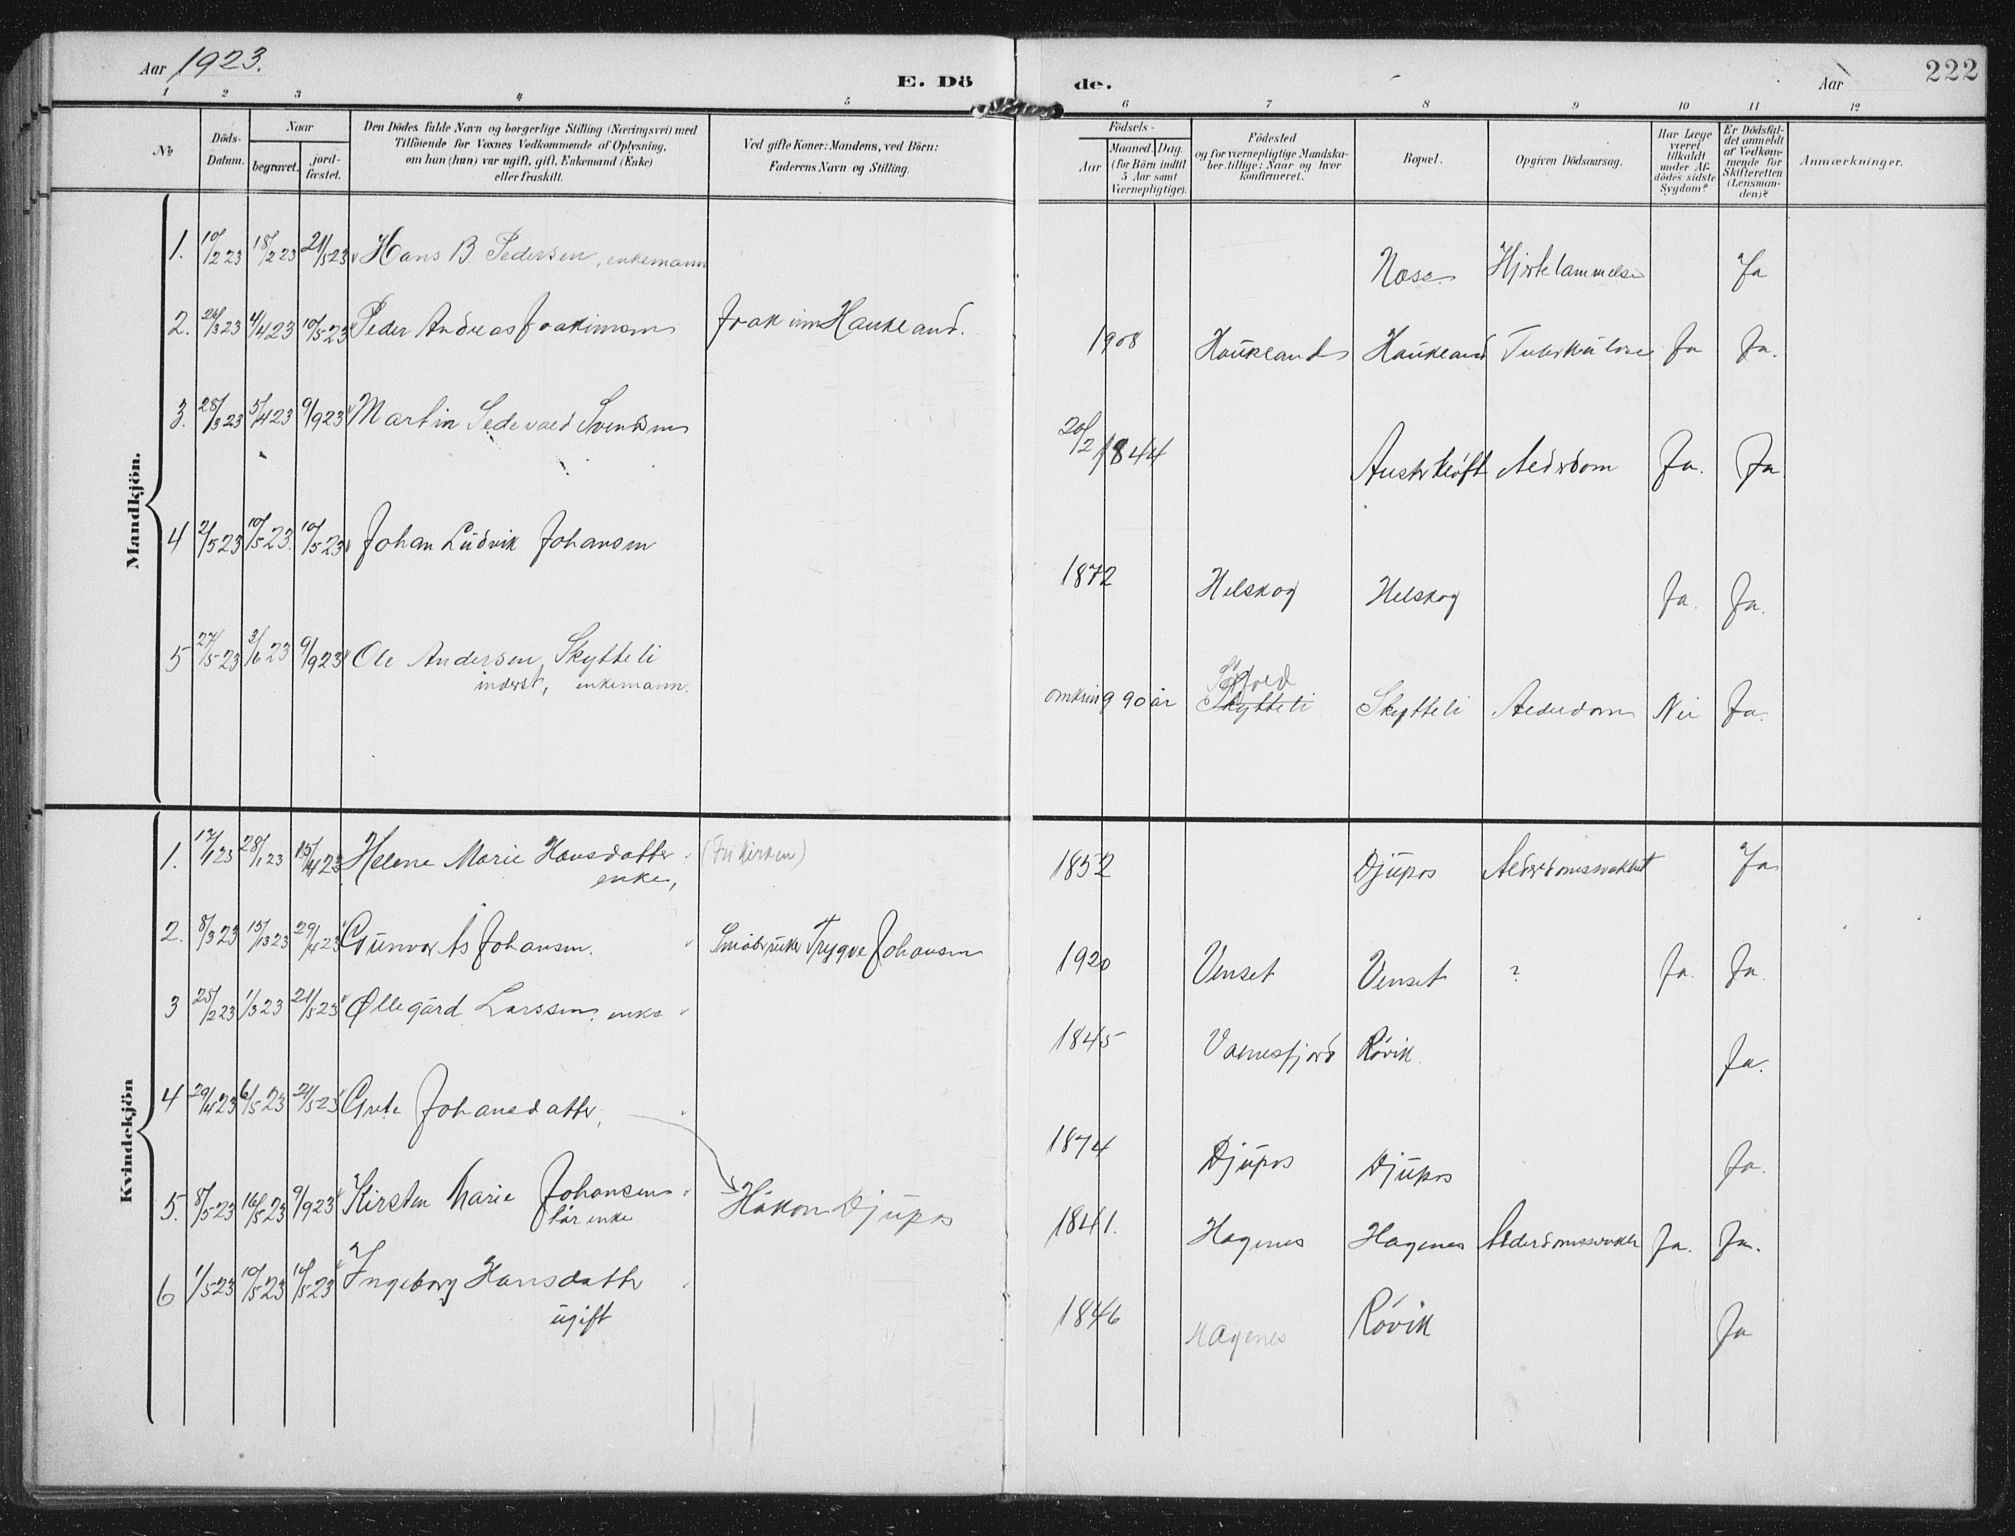 Aar 1923.
E. Dö
de.
Aar
222
1 2 3 4 5 6 7 8 9 10 11 12
№
Döds-
Datum.
Naar
begravet.
jord-
fæstet.
Den Dödes fulde Navn og borgerlige Stilling (Næringsvei) med
Tilföiende for Voxnes Vedkommende af Oplysning,
om han (hun) var ugift, gift, Enkemand (Enke)
eller fraskilt.
Ved gifte Koner: Mandens, ved Börn:
Faderens Navn og Stilling.
Födsels-
Aar
Maaned. Dag.
(for Börn indtil
5 Aar samt
Værnepligtige).
Födested
og for værnepligtige Mandska-
ber tillige: Naar og hvor
konfirmeret.
Bopæl.
Opgiven Dödsaarsag.
Har Læge
været
tilkaldt
under Af-
dödes sidste
Sygdom?
Er Dödsfal-
det anmeldt
af Vedkom-
mende for
Skifteretten
(Lensman-
den)?
Anmærkninger.
Mandkjön.
1. 10/2 23 18/2 23 21/5 23 Hans B Pedersen, enkemann Næse Hjertelammelse Ja
2. 26/3 23 4/4 23 10/5 23 Peder Andreas Joakimsen Joakim Haukland. 1908 Haukland Haukland Tuberkulose Ja Ja.
3. 28/3 23 5/4 23 9/9 23 Martin Sedevald Svendsen 20/2 1844 Austerkløft Alderdom Ja. Ja
4 2/5 23 10/5 23. 10/5 23 Johan Ludvik Johansen 1872 Helskog Helskog Ja. Ja.
5 27/5 23 3/6 23 9/9 23 Ole Andersen, Skytteli
inderst, enkemann. omkring 90 år Skytteli Skytteli Alderdom Nei Ja.
Kvindekjön
1. 17/1 23 28/1 23 15/4 23 Helene Marie Hansdatter (Frikirken)
enke, 1852 Djupos Alderdomssvakhet Ja
2. 8/3 23 15/3 23 29/4 23 Gunvor Johansen. Småbruker Trygve Johansen 1920 Venset Venset ? Ja. Ja.
3 25/2 23 1/3 23 21/5 23 Øllegård Larssen, enke 1845 Valnesfjord Røvik Ja.
4 29/4 23 6/5 23 21/5 23 Grete Johansdatter, 1874 Djupos Djupos Ja.
5. 8/5 23 16/5 23 9/9 23 Kirsten Marie Johansen Håkon Djupos
kår enke 1841. Hagenes Hagenes Alderdomssvakhet Ja. Ja.
6 1/5 23 10/5 23 10/5 23 Ingeborg Hansdatter
ugift 1846 Hagenes Røvik Ja